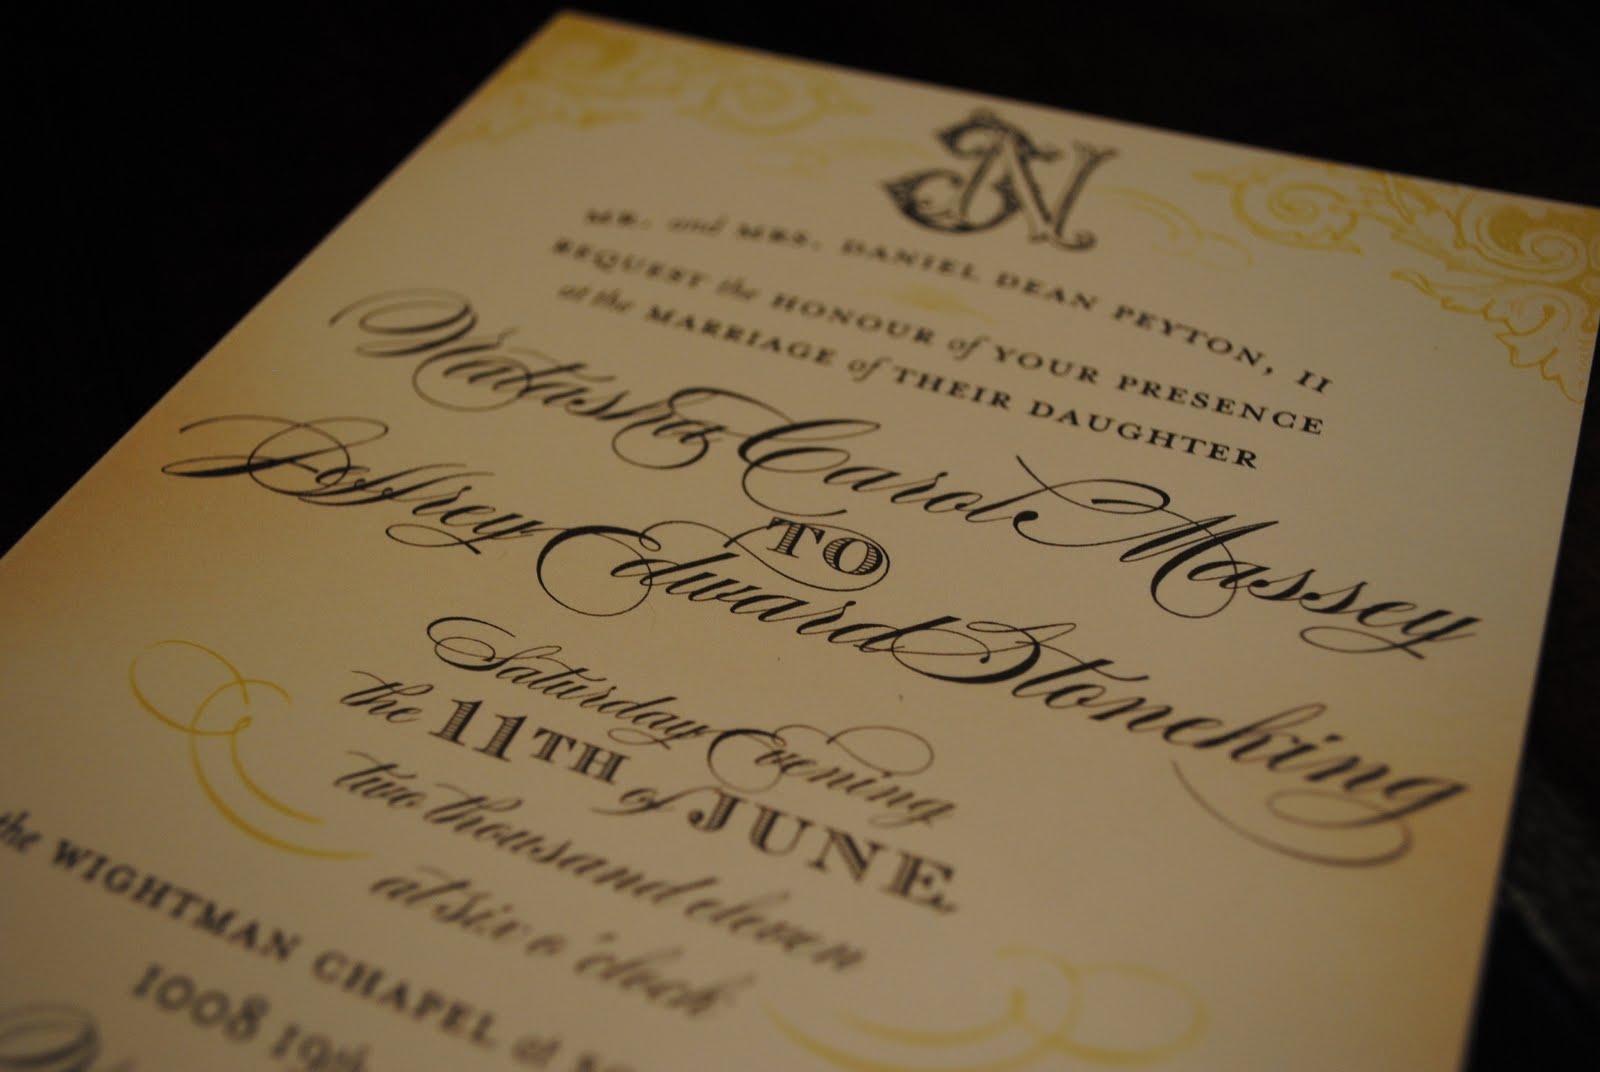 JN
MR. and MRS. DANIEL DEAN PEYTON, II
REQUEST the HONOUR of YOUR PRESENCE
at the MARRIAGE of THEIR DAUGHTER
Natasha Carol Massey
TO
Jeffrey Edward Stoneking
Saturday Evening
the 11TH of JUNE,
two thousand eleven
at six o'clock
the WIGHTMAN CHAPEL at
1008 19th